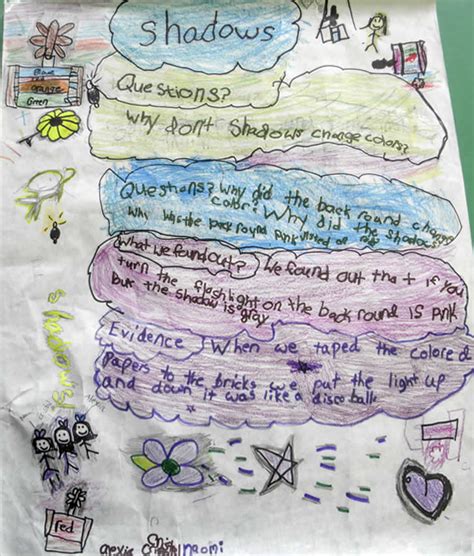 Shadows
Blue
orange
Green
Questions?
why don't shadows change colors?
Questions? Why did the back round change
color? Why did the shadows
why was the back round pink instead of
What we found out? We found out that if you
turn the flashlight on the back round is pink
but the shadow is gray
Evidence When we taped the colored
papers to the bricks we put the light up
and down it was like a disco ball
shadows!
red
alexis
naomi